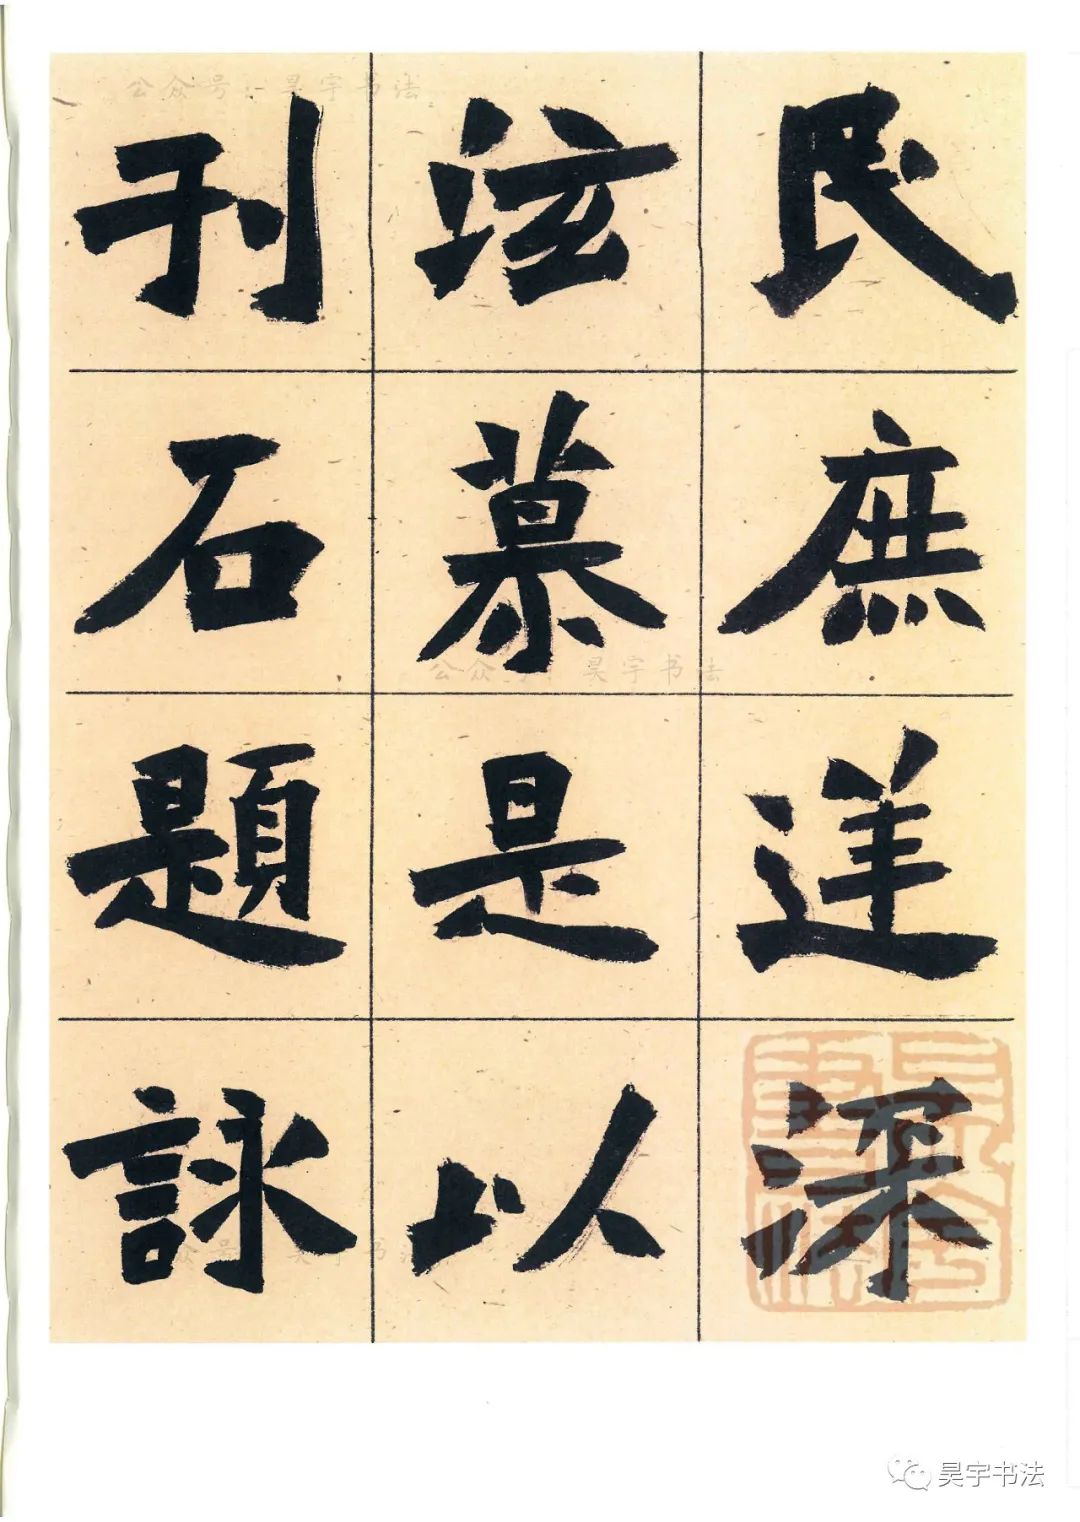 民庶深
泫慕是以
刊石題詠
公众号：昊宇书法
公众号：昊宇书法
公众号：昊宇书法
昊宇书法